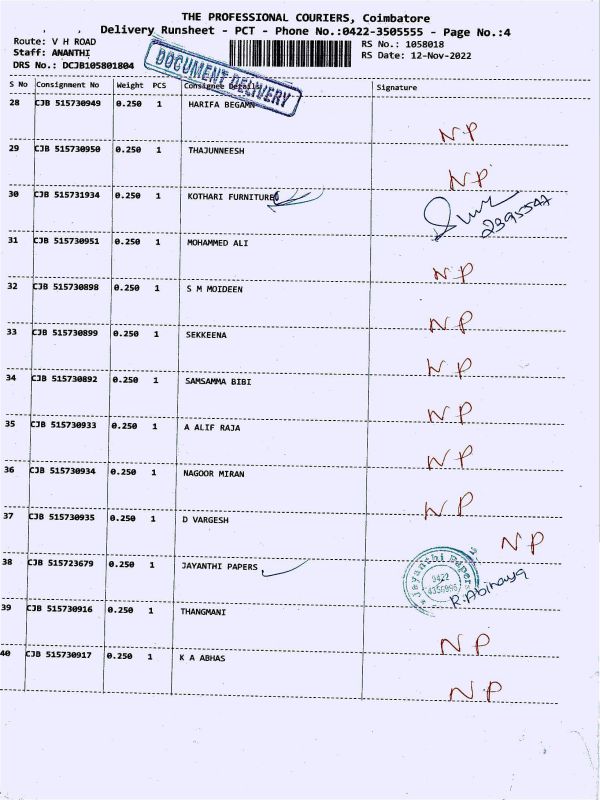 THE PROFESSIONAL COURIERS, Coimbatore
Delivery Runsheet - PCT - Phone No.:0422-3505555 - Page No.:4
Route: V H ROAD
RS No.: 1058018
Staff: ANANTHI
RS Date: 12-Nov-2022
DRS No.: DCJB105801804
DOCUMENT DELIVERY
S No Consignment No Weight PCS Consignee Details Signature
28 CJB 515730949 0.250 1 HARIFA BEGAMN
NP
29 CJB 515730950 0.250 1 THAJUNNEESH
NP
30 CJB 515731934 0.250 1 KOTHARI FURNITURES
2395547
31 CJB 515730951 0.250 1 MOHAMMED ALI
NP
32 CJB 515730898 0.250 1 S M MOIDEEN
NP
33 CJB 515730899 0.250 1 SEKKEENA
NP
34 CJB 515730892 0.250 1 SAMSAMMA BIBI
NP
35 CJB 515730933 0.250 1 A ALIF RAJA
NP
36 CJB 515730934 0.250 1 NAGOOR MIRAN
NP
37 CJB 515730935 0.250 1 D VARGESH
NP
38 CJB 515723679 0.250 1 JAYANTHI PAPERS
Jayanthi Papers
0422
4355996
R. Abinaya
39 CJB 515730916 0.250 1 THANGMANI
NP
40 CJB 515730917 0.250 1 K A ABHAS
NP